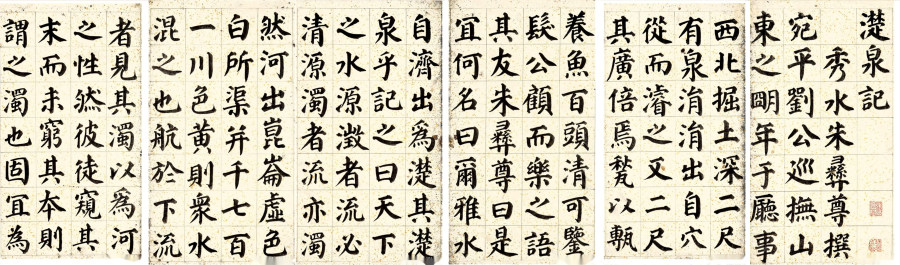 濋泉記
秀水朱彝尊撰
宛平劉公巡撫山
東之明年于廳事
西北掘土深二尺
有泉涓涓出自穴
從而濬之又二尺
其廣倍焉甃以甎
養魚百頭清可鑒
髮公顧而樂之語
其友朱彝尊曰是
宜何名曰爾雅水
自濟出爲濋其濋
泉乎記之曰天下
之水源澂者流必
清源濁者流亦濁
然河出崑崙虛色
白所渠并千七百
一川色黃則衆水
混之也航於下流
者見其濁以爲河
之性然彼徒窺其
末而未窮其本則
謂之濁也固宜為